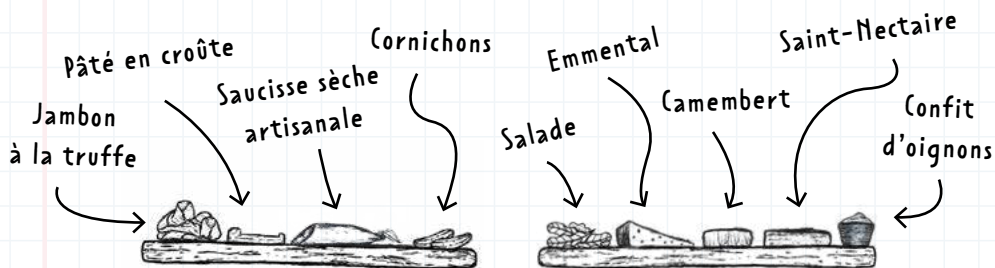 Jambon
à la truffe
Pâté en croûte
Saucisse sèche
artisanale
Cornichons
Salade
Emmental
Camembert
Saint-Nectaire
Confit
d'oignons